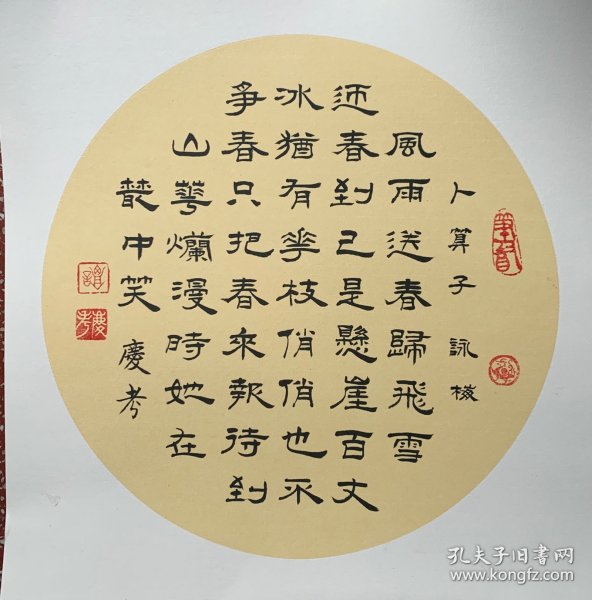 卜算子 詠梅
風雨送春歸飛雪
迎春到已是懸崖百丈
冰猶有華枝俏俏也不
爭春只把春來報待到
山華爛漫時她在
叢中笑 慶考
慶考
孔夫子旧書网
www.kongfz.com